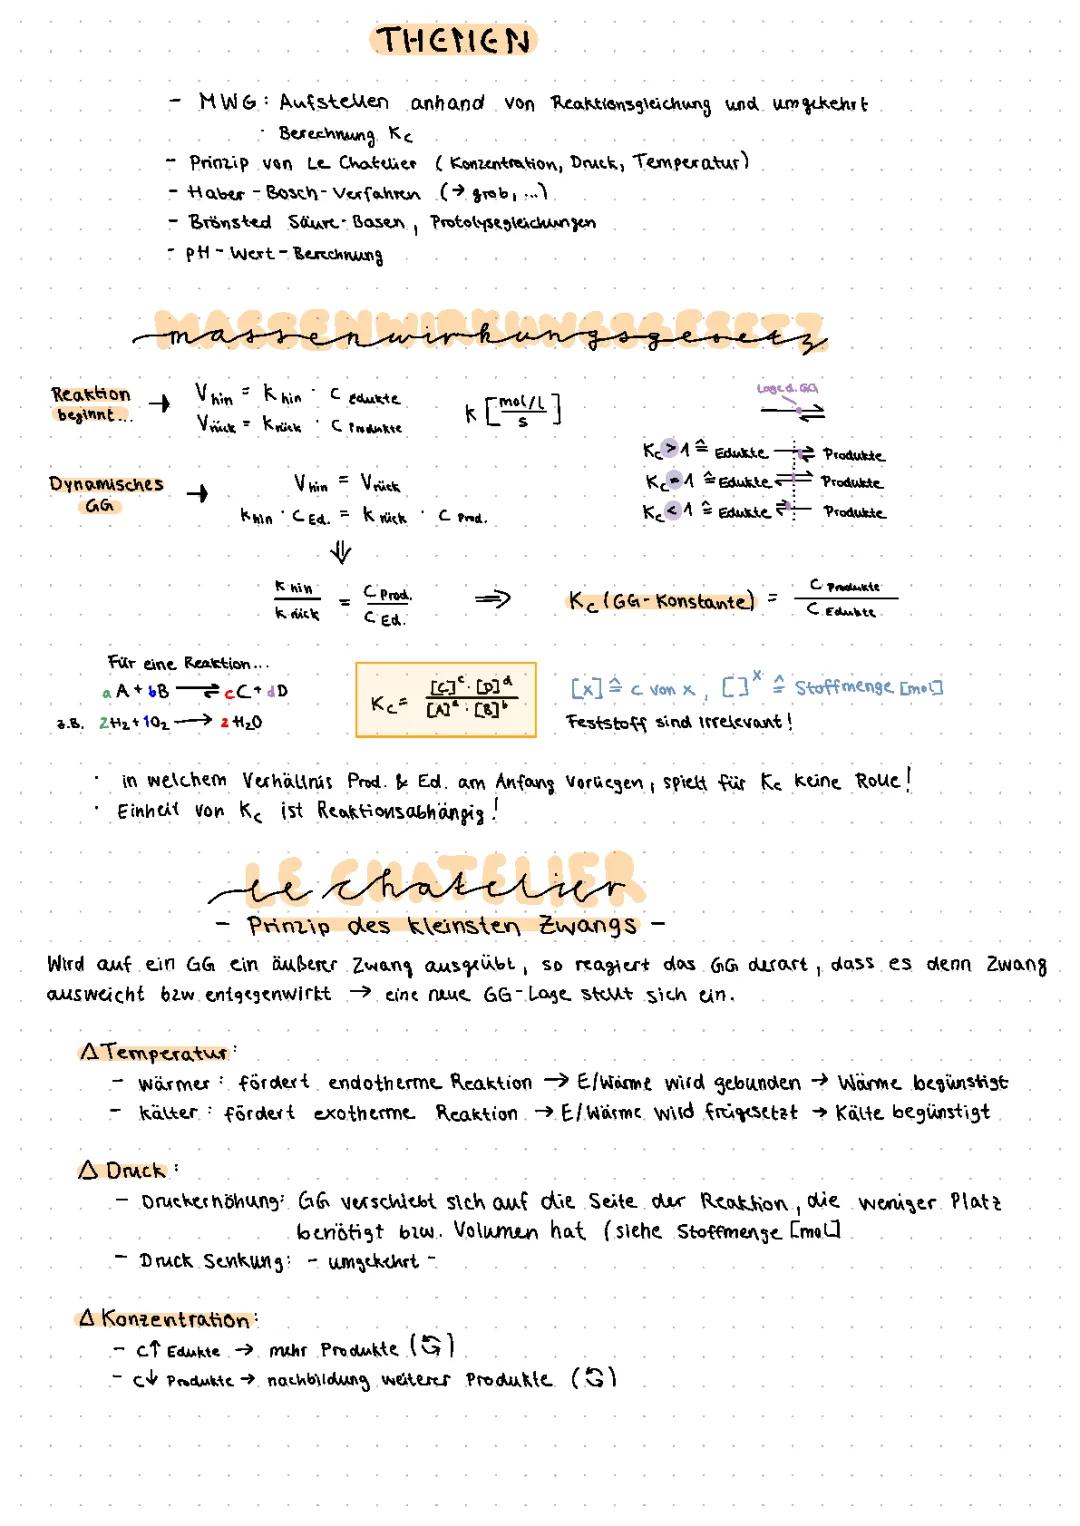 THEMEN
- MWG: Aufstellen anhand von Reaktionsgleichung und umgekehrt
· Berechnung Kc
- Prinzip von Le Chatelier (Konzentration, Druck, Temperatur)
- Haber-Bosch-Verfahren (→ grob, ...)
- Brönsted Säure-Basen, Protolysegleichungen
- pH-Wert-Berechnung
MASSENWIRKUNGSGESETZ
massenwirkungsgesetz
Reaktion beginnt... → Vhin = khin · c edukte
Vrück = Krück · c Produkte
k [mol/L / s]
Lage d. GG
Kc > 1 ≙ Edukte ⇌ Produkte
Kc = 1 ≙ Edukte ⇌ Produkte
Kc < 1 ≙ Edukte ⇌ Produkte
Dynamisches GG → Vhin = Vrück
khin · cEd. = krück · c Prod.
⇓
khin / krück = c Prod. / c Ed. ⇒ Kc (GG-Konstante) = c Produkte / c Edukte
Für eine Reaktion...
aA + bB ⇌ cC + dD
z.B. 2H₂ + 1O₂ → 2H₂O
Kc = [C]ᶜ · [D]ᵈ / [A]ᵃ · [B]ᵇ
[x] ≙ c von x, []ˣ ≙ Stoffmenge [mol]
Feststoff sind irrelevant!
· in welchem Verhältnis Prod. & Ed. am Anfang vorliegen, spielt für Kc keine Rolle!
· Einheit von Kc ist Reaktionsabhängig!
LE CHATELIER
le chatelier
- Prinzip des kleinsten Zwangs -
Wird auf ein GG ein äußerer Zwang ausgeübt, so reagiert das GG derart, dass es denn Zwang
ausweicht bzw. entgegenwirkt → eine neue GG-Lage stellt sich ein.
Δ Temperatur:
- wärmer: fördert endotherme Reaktion → E/Wärme wird gebunden → Wärme begünstigt
- kälter: fördert exotherme Reaktion → E/Wärme wird freigesetzt → Kälte begünstigt
Δ Druck:
- Druckerhöhung: GG verschiebt sich auf die Seite der Reaktion, die weniger Platz
benötigt bzw. Volumen hat (siehe Stoffmenge [mol]
- Druck Senkung: - umgekehrt -
Δ Konzentration:
- c↑ Edukte → mehr Produkte (↺)
- c↓ Produkte → nachbildung weiterer Produkte (↺)